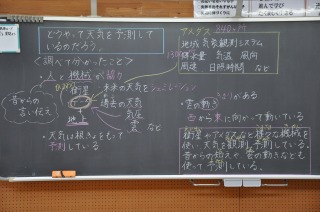 どうやって天気を予測して
いるのだろう。
<調べて分かったこと>
・人と機械が協力
衛星
未来の天気 シュミレーション
過去の天気
気圧
雲 など
地上
昔からの
言い伝え
・天気は根きょをもって
予測している
アメダス 840か所
地域気象観測システム
1300か所
降水量 気温 風向
風速 日照時間 など
・雲の動き
西から東に向かって動いている
衛星やアメダスなど様々な機械を
使い天気を観測、予測している。
昔からの伝えや雲の動きなども
使って予測している。